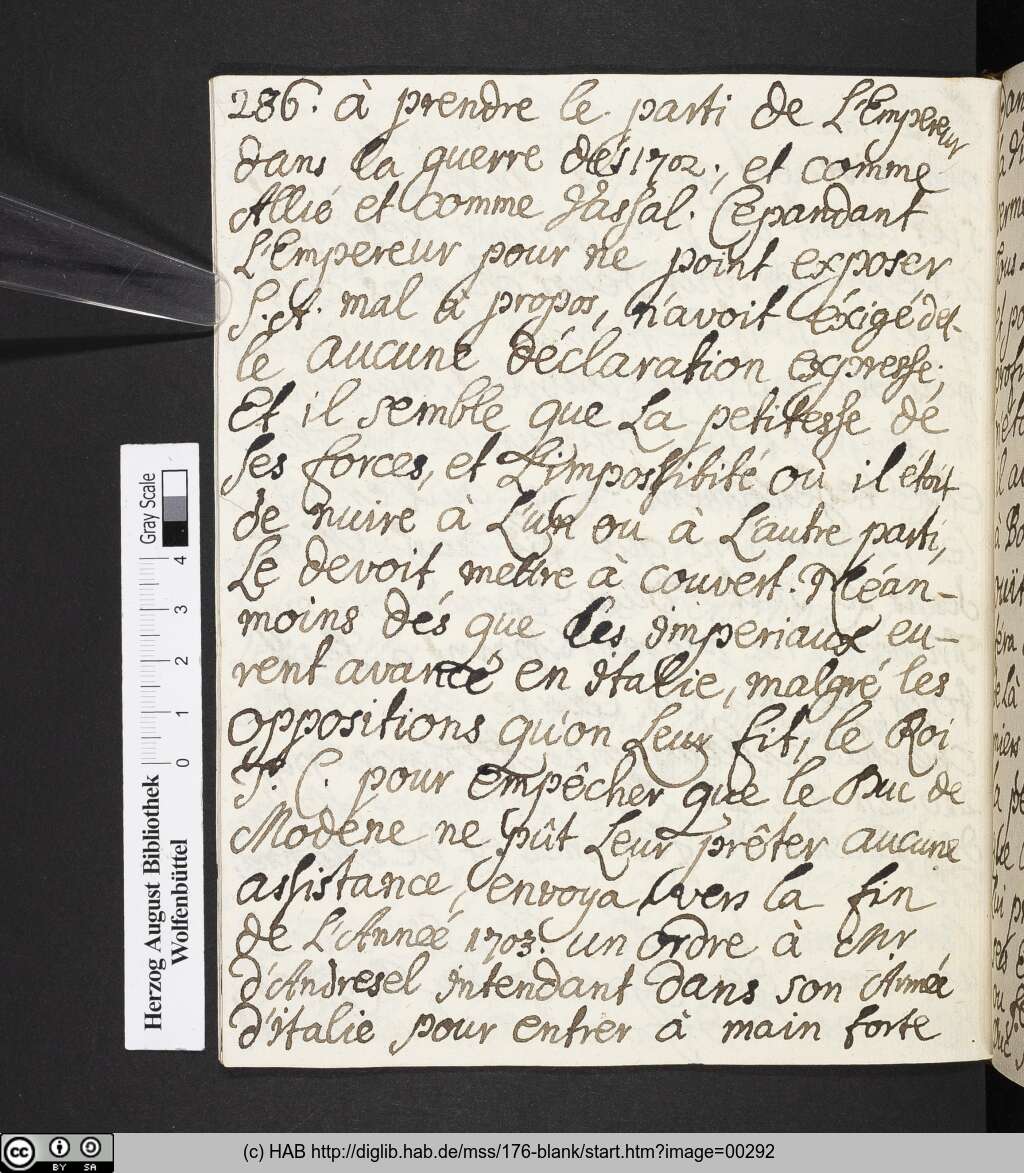 286. à prendre le parti de L'Empereur
dans la guerre dés 1702; et comme
Allié et comme Vassal. Cepandant
L'Empereur pour ne point exposer
S. A. mal à propos, n'avoit éxigé d'el-
le aucune déclaration expresse;
Et il semble que La petitesse de
ses forces, et L'impossibité où il étoit
de nuire à L'un ou à L'autre parti,
Le devoit mettre à couvert. Néan-
moins dés que les impériaux eu-
rent avancé en Italie, malgré les
oppositions qu'on Leur fit, le Roi
T. C. pour empêcher que le Duc de
Modéne ne pût Leur prêter aucune
assistance, envoya vers la fin
de L'Année 1703. un ordre à Mr
d'Andresel intendant dans son Armée
d'italie pour entrer à main forte
Gray Scale
4 3 2 1 0
Herzog August Bibliothek
Wolfenbüttel
cc BY SA
(c) HAB http://diglib.hab.de/mss/176-blank/start.htm?image=00292